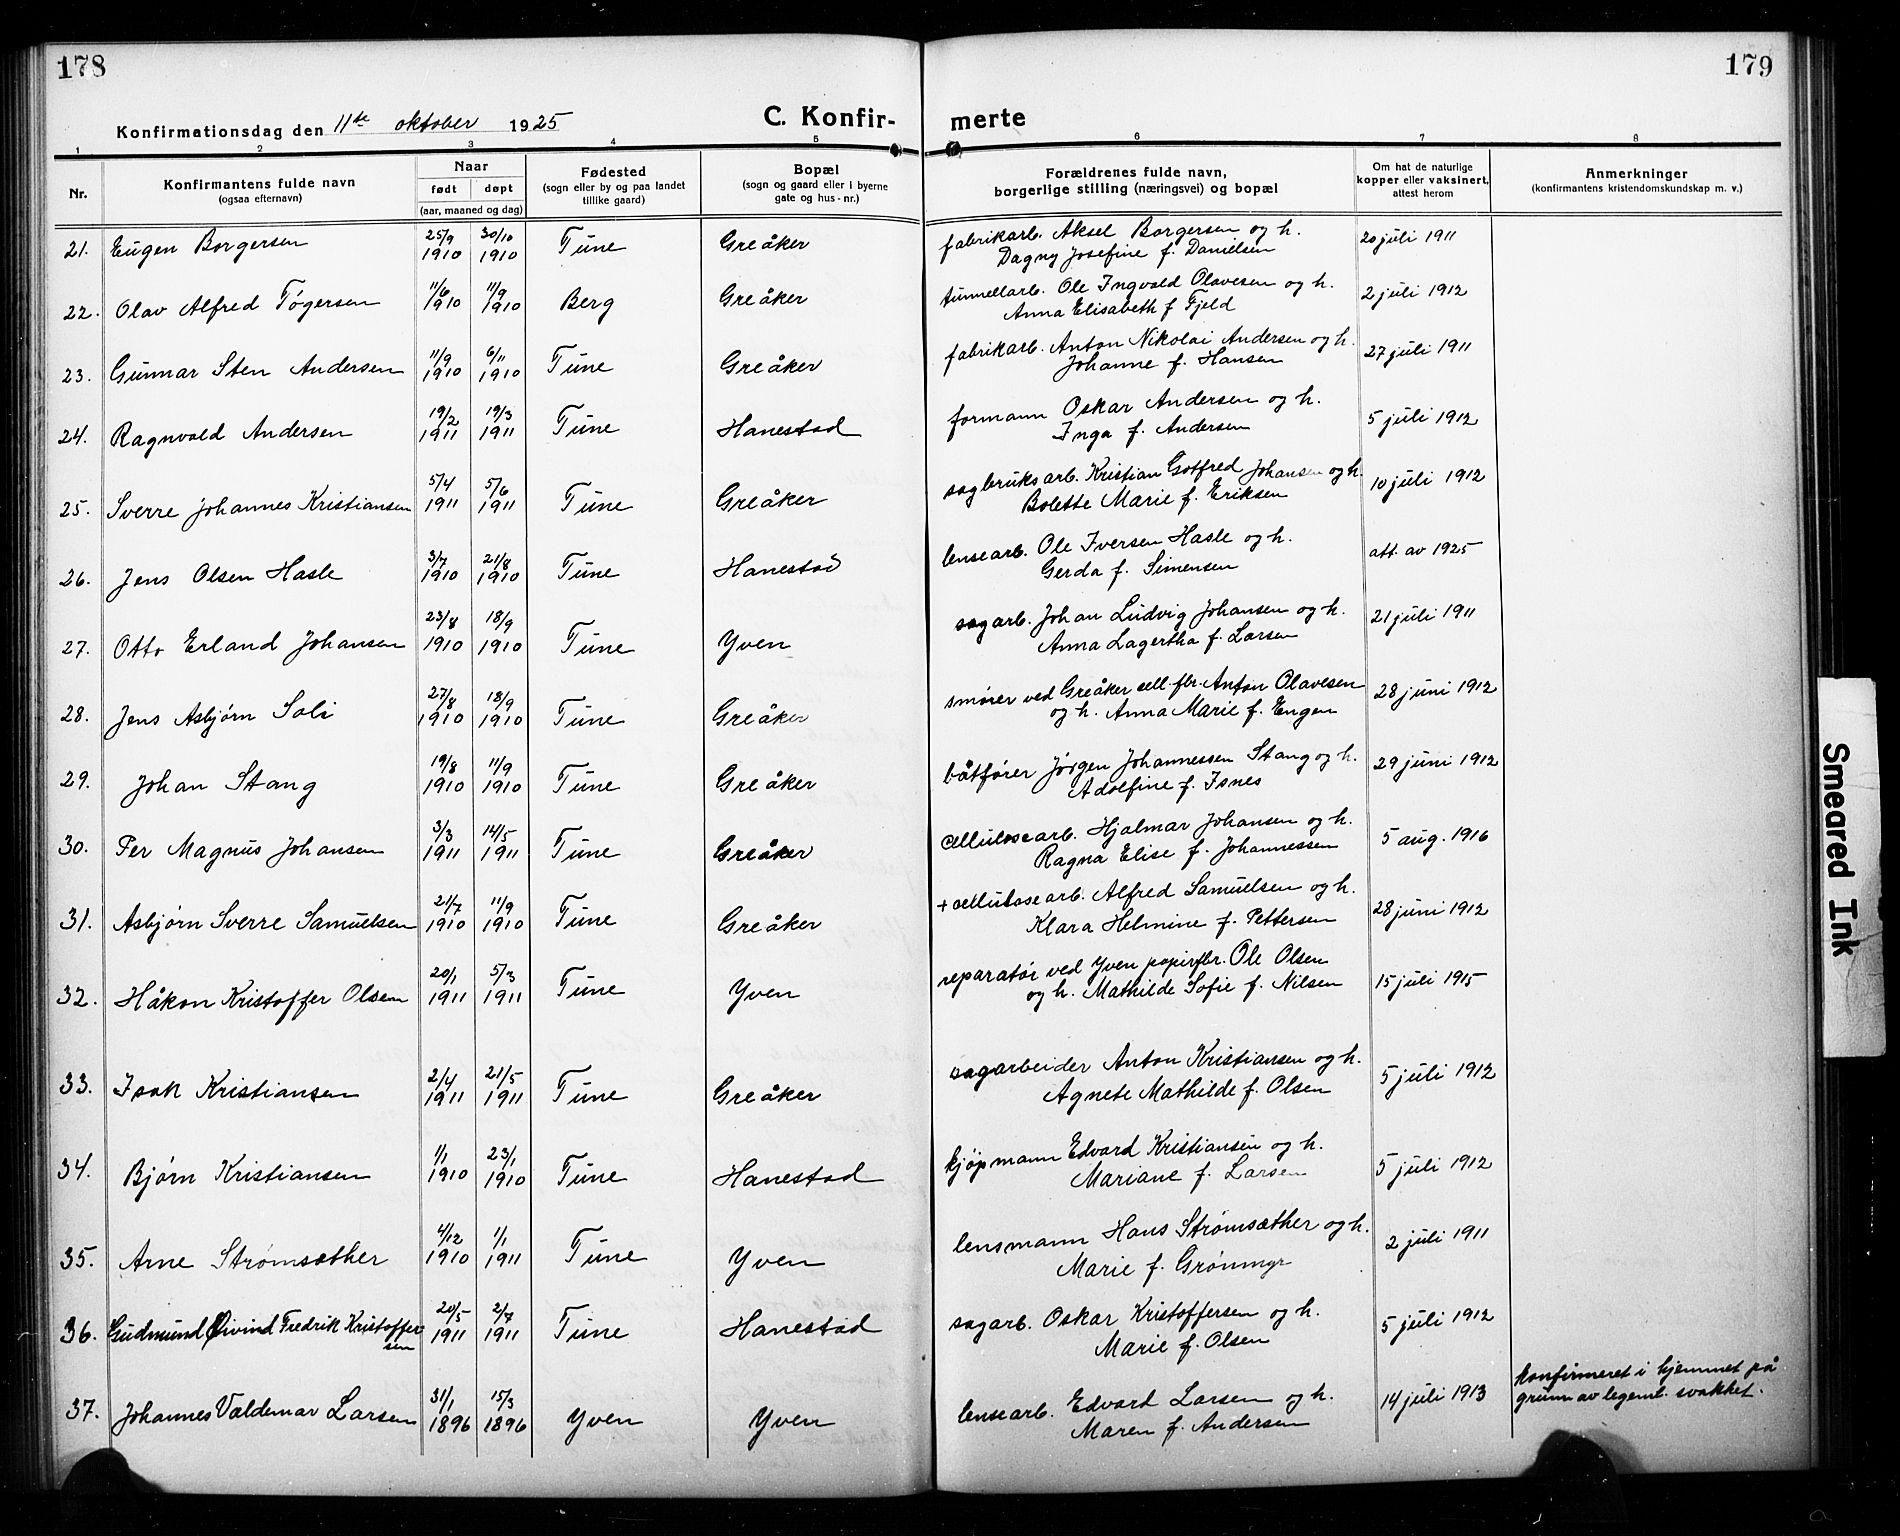 178
179
Konfirmationsdag den 11te oktober 1925
C. Konfir-
merte
1 2 3 4 5 6 7 8
Nr.
Konfirmantens fulde navn
(ogsaa efternavn)
Naar
født døpt
(aar, maaned og dag)
Fødested
(sogn eller by og paa landet
tillike gaard)
Bopæl
(sogn og gaard eller i byerne
gate og hus-nr.)
Forældrenes fulde navn,
borgerlige stilling (næringsvei) og bopæl
Om hat de naturlige
kopper eller vaksinert,
attest herom
Anmerkninger
(konfirmantens kristendomskundskap m. v.)
21. Eugen Borgersen 25/9 1910 30/10 1910 Tune Greåker fabrikarb. Aksel Borgersen og h. 20 juli 1911
Dagny Josefine f. Danielsen
22. Olav Alfred Tøgersen 11/6 1910 11/9 1910 Berg Greåker tunnellarb. Ole Ingvald Olavesen og h. 2 juli 1912
Anna Elisabeth f Fjeld
23. Gunnar Sten Andersen 11/9 1910 6/11 1910 Tune Greåker fabrikarb. Anton Nikolai Andersen og h. 27 juli 1911
Johanne f. Hansen
24. Ragnvald Andersen 19/2 1911 19/3 1911 Tune Hanestad formann Oskar Andersen og h. 5 juli 1912
Inga f. Andersen
25. Sverre Johannes Kristiansen 5/4 1911 5/6 1911 Tune Greåker sagbruksarb. Kristian Gotfred Johansen og h. 10 juli 1912
Bolette Marie f. Eriksen
26. Jens Olsen Hasle 3/7 1910 21/8 1910 Tune Hanestad lensearb. Ole Iversen Hasle og h. att. av 1925
Gerda f. Simensen
27. Otto Erland Johansen 23/8 1910 18/9 1910 Tune Yven sagarb. Johan Ludvig Johansen og h. 21 juli 1911
Anna Lagertha f. Larsen
28. Jens Asbjørn Soli 27/8 1910 18/9 1910 Tune Greåker smører ved Greåker cell. fbr. Anton Olavesen 28 juni 1912
og h. Anna Marie f. Engen
29. Johan Stang 19/8 1910 11/9 1910 Tune Greåker båtfører Jørgen Johannessen Stang og h. 29 juni 1912
Adolfine f. Isnes
30. Per Magnus Johansen 3/3 1911 14/5 1911 Tune Greåker cellulosearb. Hjalmar Johansen og h. 5 aug. 1916
Ragna Elise f. Johannessen
31. Asbjørn Sverre Samuelsen 21/7 1910 11/9 1910 Tune Greåker + cellulosearb. Alfred Samuelsen og h. 28 juni 1912
Klara Helmine f. Pettersen
32. Håkon Kristoffer Olsen 20/1 1911 5/3 1911 Tune Yven reparatør ved Yven papirfbr. Ole Olsen 15 juli 1915
og h. Mathilde Sofie f. Nilsen
33. Isak Kristiansen 2/4 1911 21/5 1911 Tune Greåker sagarbeider Anton Kristiansen og h. 5 juli 1912
Agnete Mathilde f. Olsen
34. Bjørn Kristiansen 1/1 1910 23/1 1910 Tune Hanestad kjøpmann Edvard Kristiansen og h. 5 juli 1912
Mariane f. Larsen
35. Arne Strømsæther 4/12 1910 1/1 1911 Tune Yven lensmann Hans Strømsæther og h. 2 juli 1911
Marie f. Grønmyr
36. Gudmund Øivind Fredrik Kristoffer 20/5 1911 2/7 1911 Tune Hanestad sagarb. Oskar Kristoffersen og h. 5 juli 1912
sen Marie f. Olsen
37. Johannes Valdemar Larsen 31/1 1896 15/3 1896 Yven Yven lensearb. Edvard Larsen og h. 14 juli 1913 konfirmeret i hjemmet på
Maren f. Andersen grunn av legeml. svakhet.
Smeared Ink